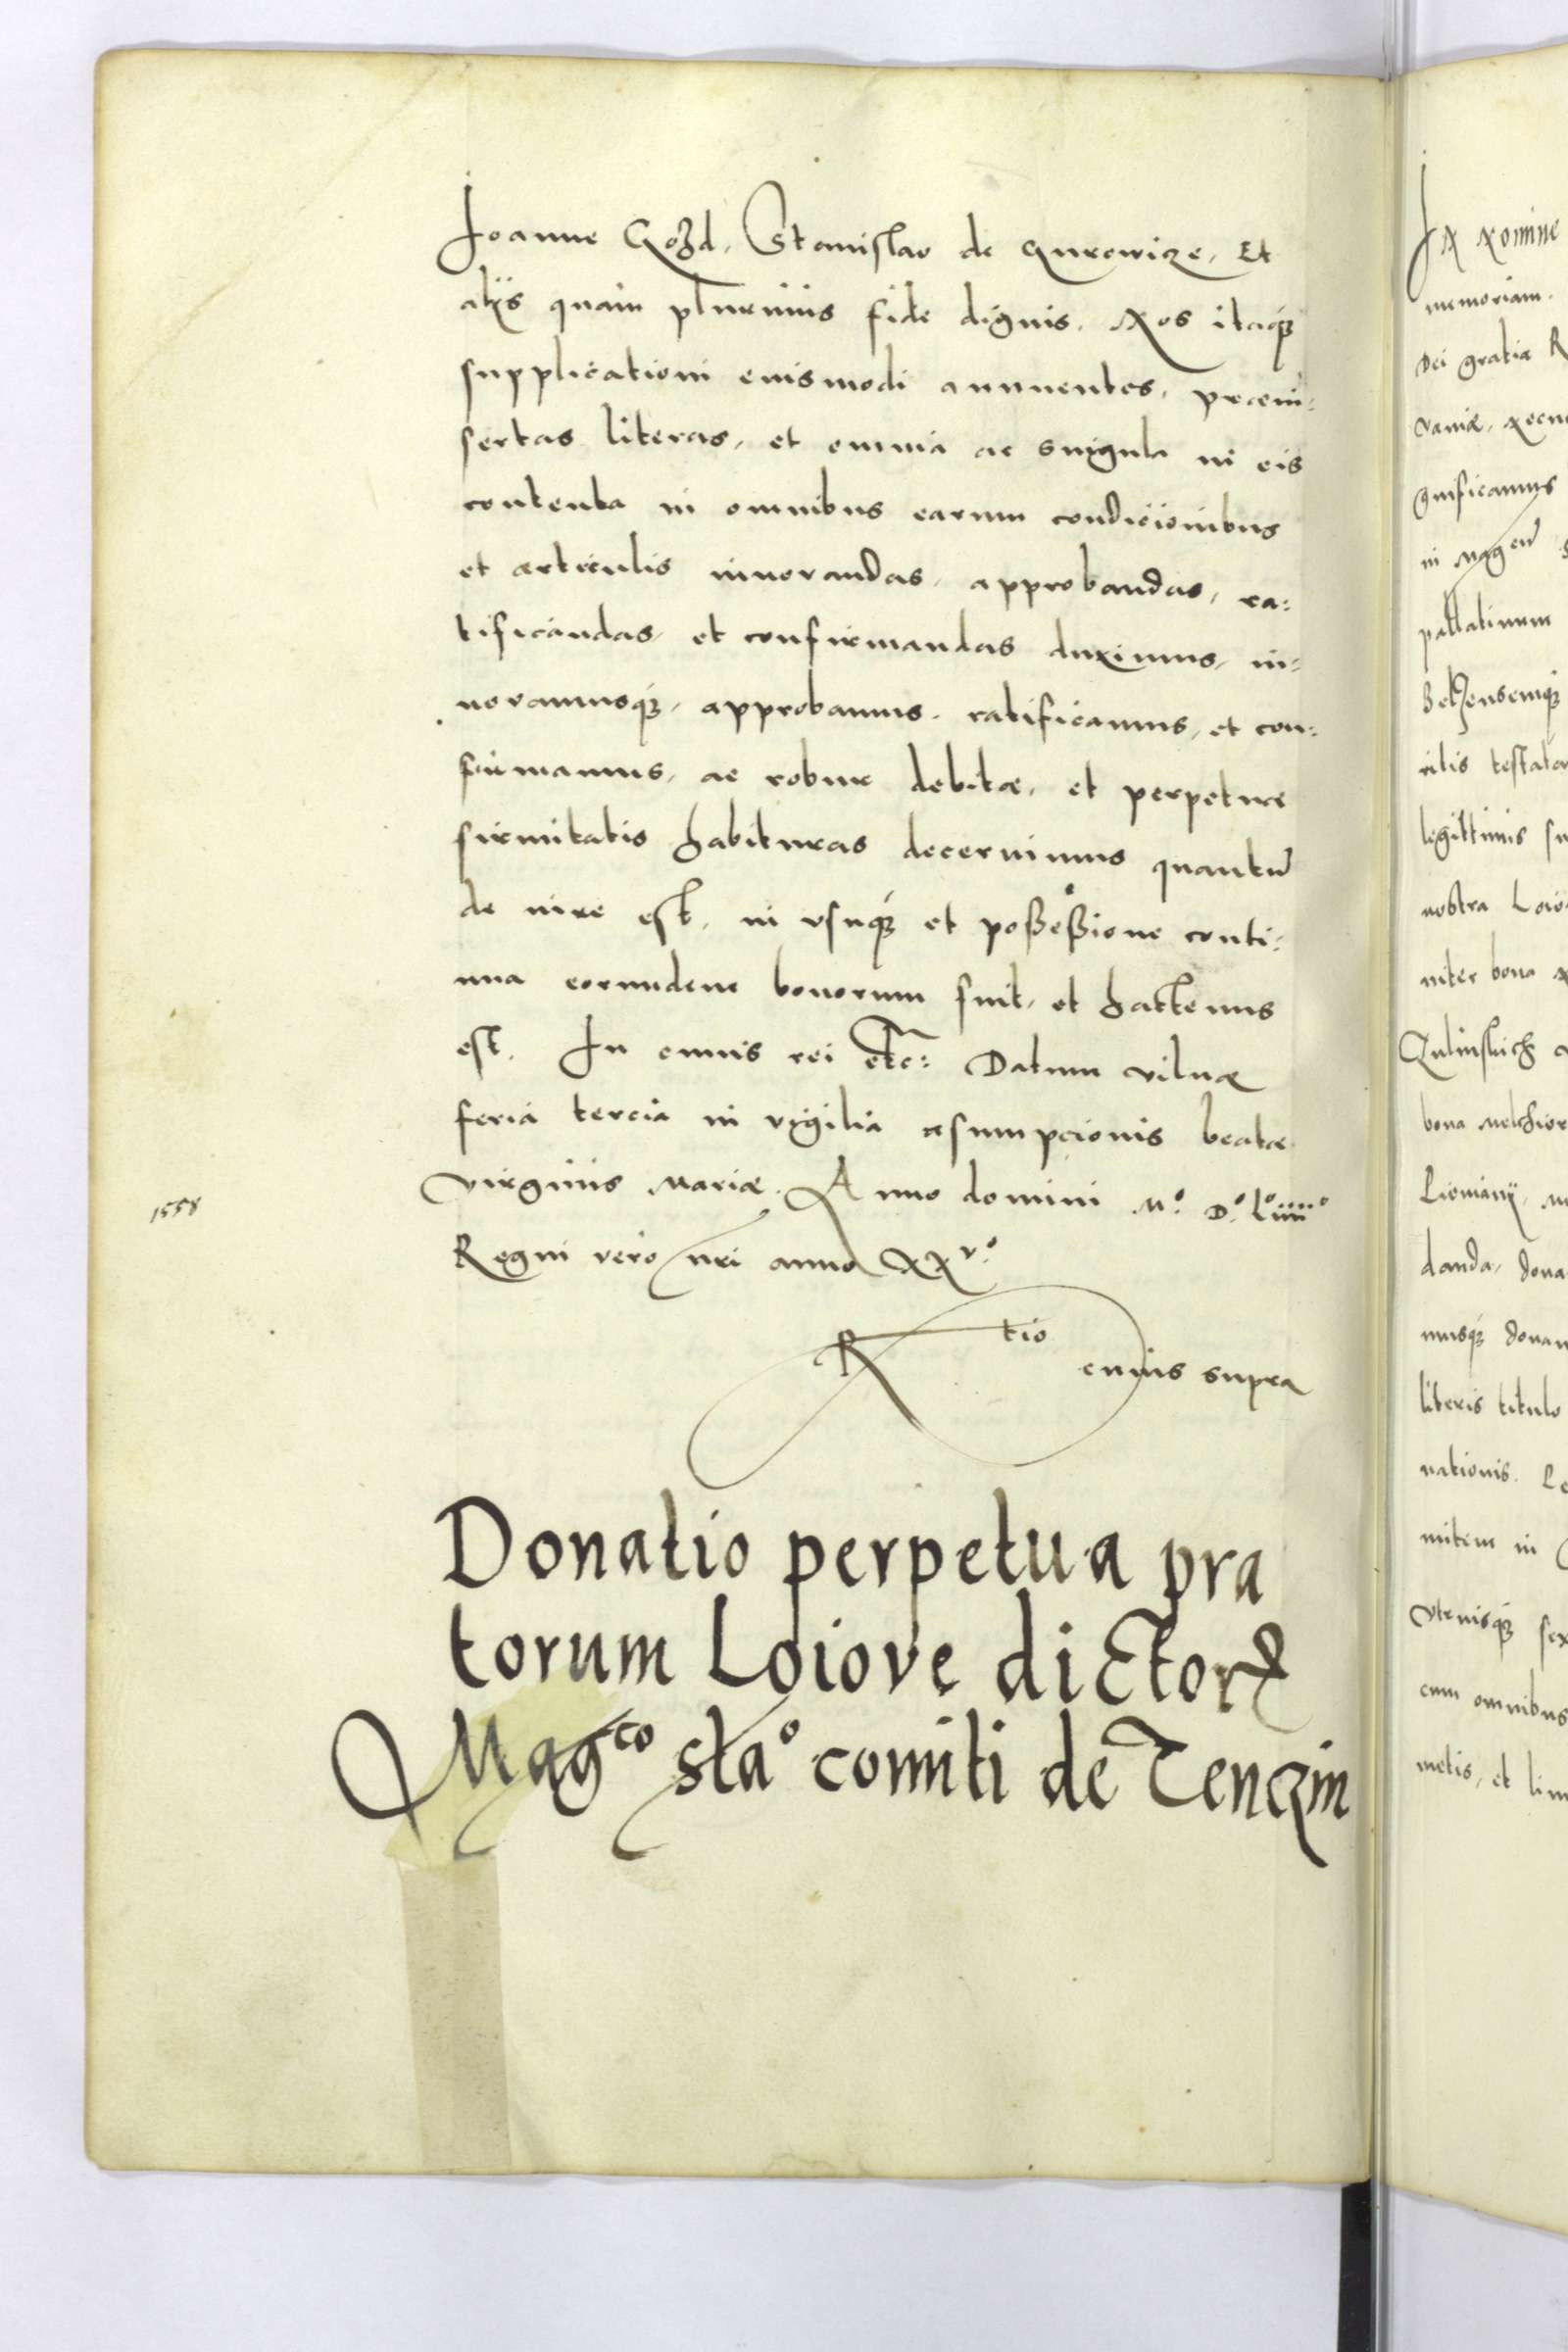 Joanne Gozd, Stanislao de Gurowize, Et
alijs quam plurimis fide dignis. Nos itaque
supplicationi euismodi annuentes, præin:
sertas literas, et omnia ac singula in eis
contenta in omnibus earum condicionibus
et articulis innovandas, approbandas, ra:
tificandas, et confirmandas duximus, in:
novamusque, approbamus, ratificamus, et con:
firmamus, ac robur debitæ, et perpetuæ
firmitatis habituras decernimus quantum
de iure est, in usuque et possessione conti:
nua eorundem bonorum fuit, et hactenus
est. In cuius rei etc: Datum Vilnæ
feria tercia in vigilia assumpcionis beatæ
virginis Mariæ. Anno domini M.º D.º L.º iiii.º
Regni vero nri anno XXv.º
1558
R tio cuius supra
Donatio perpetua pra
torum Loiove dictorum
Mag.co sta.º comiti de Tenczin
In nomine
memoriam.
Dei gratia R
vaniæ, necn
gnificamus
in Mag cum
pallatinum
Belzensemque
ritis testata
legittimis su
nostra Loio
inter bona
bona Melchior
danda, dona
musque donam
literis titulo
nationis.
mitem in
utriusque sex
cum omnibus
metis, et lim